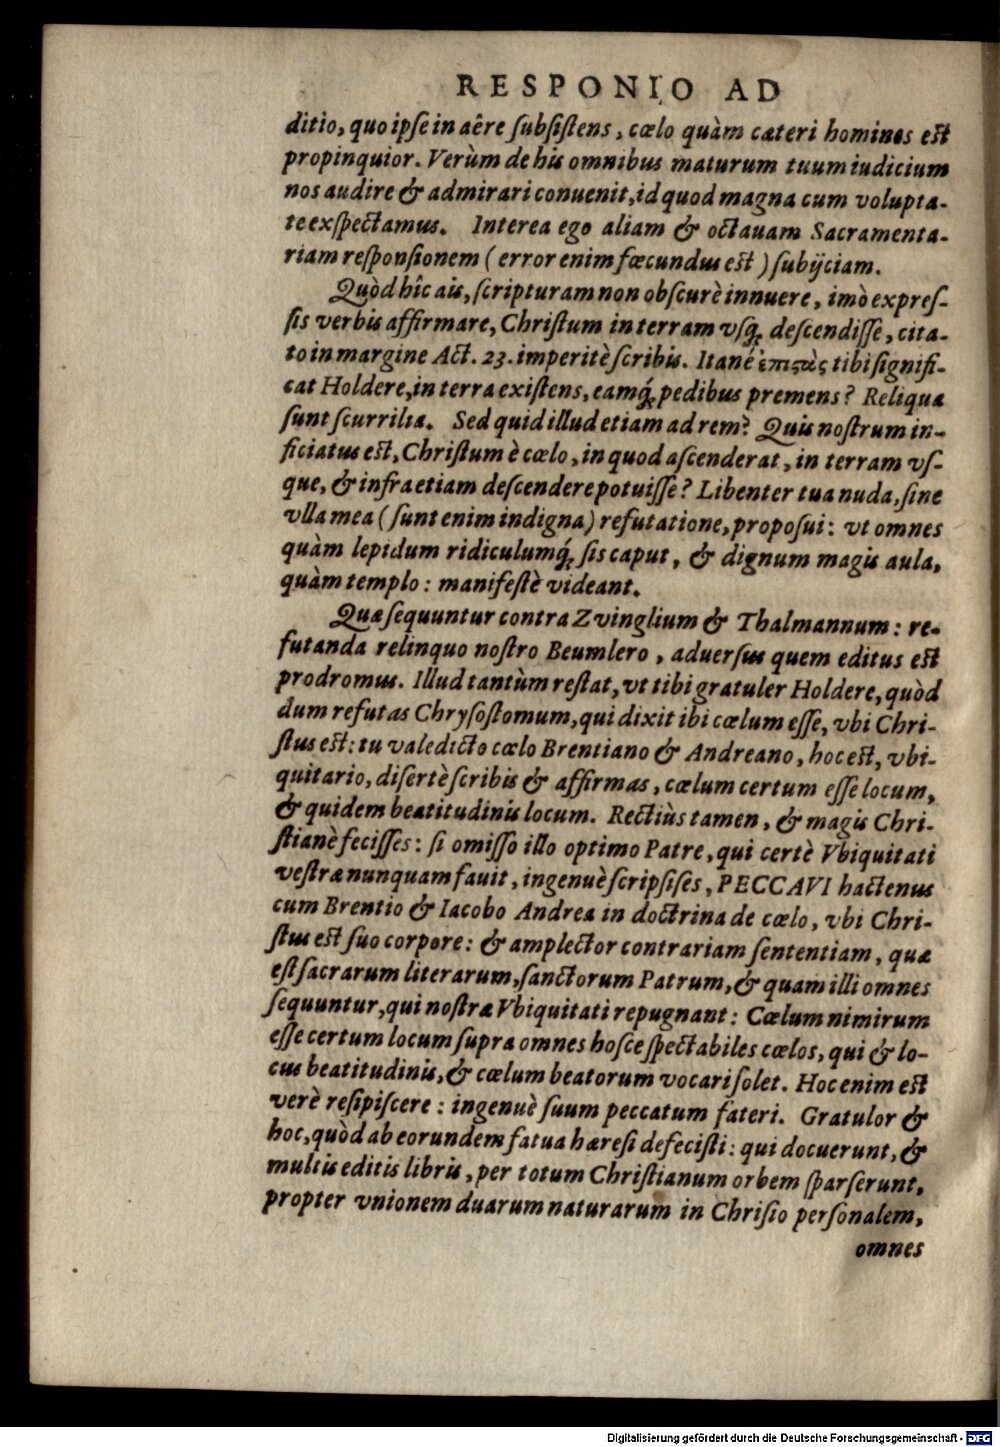 RESPONIO AD
ditio, quo ipſe in aêre ſubſiſtens, cælo quàm cæteri homines eſt
propinquior. Verùm de his omnibus maturum tuum iudicium
nos audire & admirari conuenit, id quod magna cum volupta-
te exſpectamus. Interea ego aliam & octauam Sacramenta-
riam reſponſionem (error enim fœcundus eſt) ſubijciam.
Quòd hîc ais, ſcripturam non obſcurè innuere, imò expreſ-
ſis verbis affirmare, Chriſtum in terram vſq; deſcendiſſe, cita-
to in margine Act. 23. imperitè ſcribis. Itané ἐπιϛὰς tibi ſignifi-
cat Holdere, in terra exiſtens, eamq́; pedibus premens? Reliqua
ſunt ſcurrilia. Sed quid illud etiam ad rem? Quis noſtrum in-
ficiatus eſt, Chriſtum è cœlo, in quod aſcenderat, in terram vſ-
que, & infra etiam deſcendere potuiſſe? Libenter tua nuda, ſine
vlla mea (ſunt enim indigna) refutatione, propoſui: vt omnes
quàm lepidum ridiculumq́; ſis caput, & dignum magis aula,
quàm templo: manifeſtè videant.
Quæ ſequuntur contra Zvinglium & Thalmannum: re-
futanda relinquo noſtro Beumlero, aduerſus quem editus eſt
prodromus. Illud tantùm reſtat, vt tibi gratuler Holdere, quòd
dum refutas Chryſoſtomum, qui dixit ibi cœlum eſſe, vbi Chri-
ſtus eſt: tu valedicto cœlo Brentiano & Andreano, hoc eſt, vbi-
quitario, diſertè ſcribis & affirmas, cœlum certum eſſe locum,
& quidem beatitudinis locum. Rectiùs tamen, & magis Chri-
ſtianè feciſſes: ſi omiſſo illo optimo Patre, qui certè Vbiquitati
veſtræ nunquam fauit, ingenuè ſcripſiſes, PECCAVI hactenus
cum Brentio & Iacobo Andrea in doctrina de cœlo, vbi Chri-
ſtus eſt ſuo corpore: & amplector contrariam ſententiam, quæ
eſt ſacrarum literarum, ſanctorum Patrum, & quam illi omnes
ſequuntur, qui noſtræ Vbiquitati repugnant: Cœlum nimirum
eſſe certum locum ſupra omnes hoſce ſpectabiles cœlos, qui & lo-
cus beatitudinis, & cœlum beatorum vocari ſolet. Hoc enim eſt
verè reſipiſcere: ingenuè ſuum peccatum fateri. Gratulor &
hoc, quòd ab eorundem fatua hæreſi defeciſti: qui docuerunt, &
multis editis libris, per totum Chriſtianum orbem ſparſerunt,
propter vnionem duarum naturarum in Chriſto perſonalem,
omnes
Digitalisierung gefördert durch die Deutsche Forschungsgemeinschaft - DFG